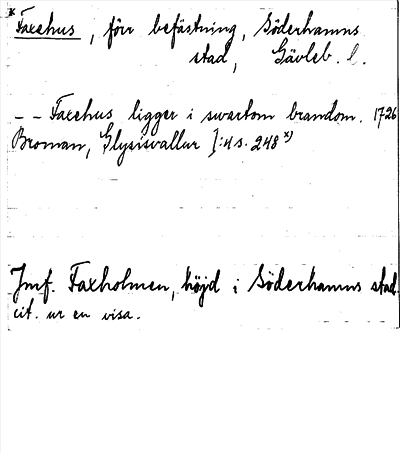 * Faxehus, förr befästning, Söderhamns
stad, Gävleb. l.
-- Faxehus ligger i swartom brandom. 1726
Broman, Glysisvallur I:4 s. 248 x)
Jmf. Faxholmen, höjd i Söderhamns stad.
cit. ur en visa.